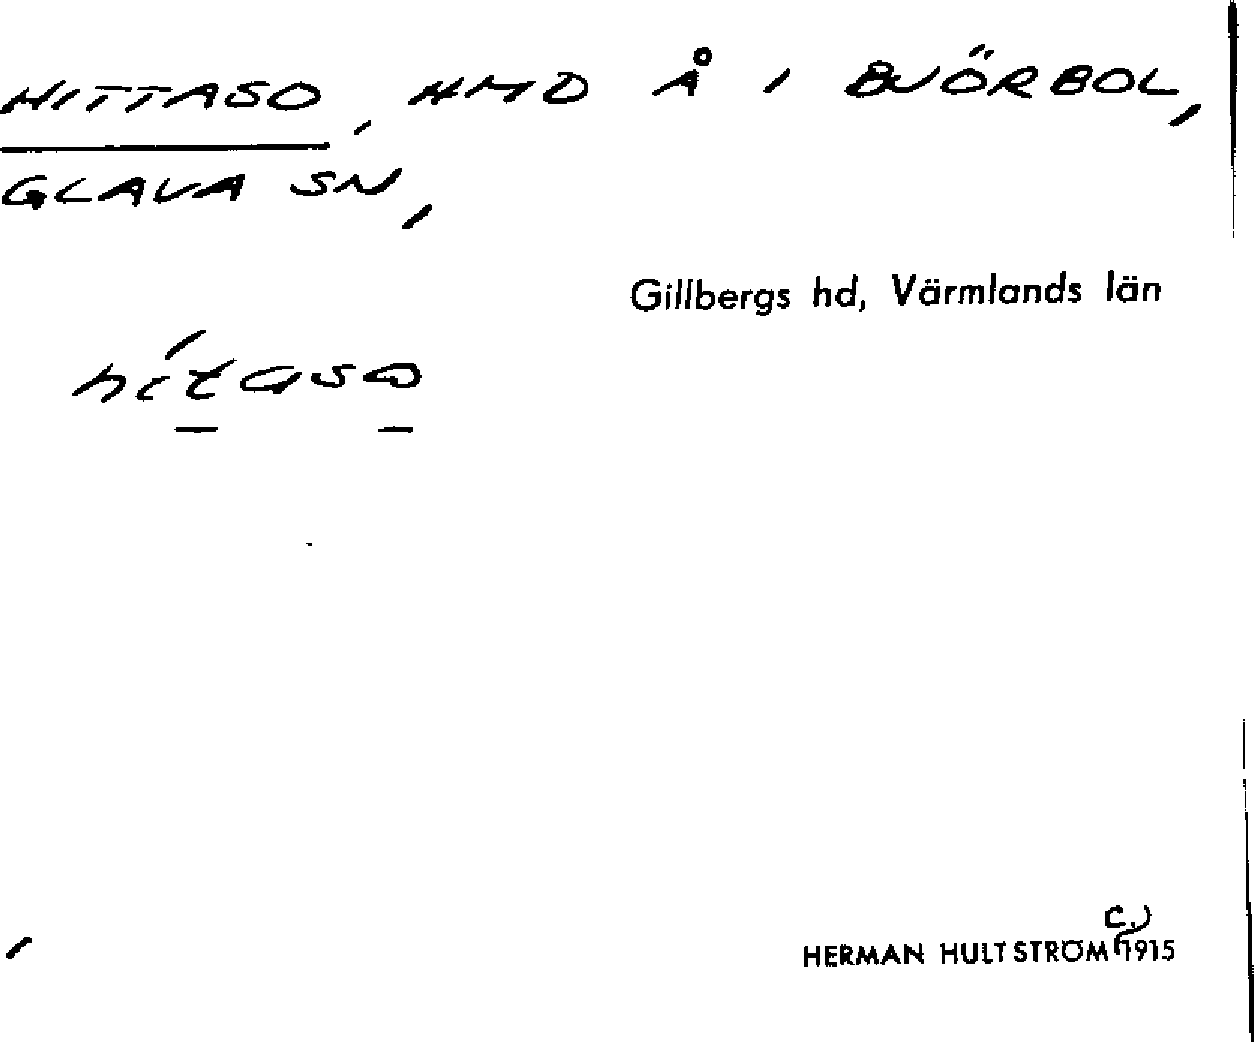 HITTASO, HMD Å I BJÖRBOL,
GLAVA SN,
Gillbergs hd, Värmlands län
hítaso
HERMAN HULTSTRÖM c.) 1915